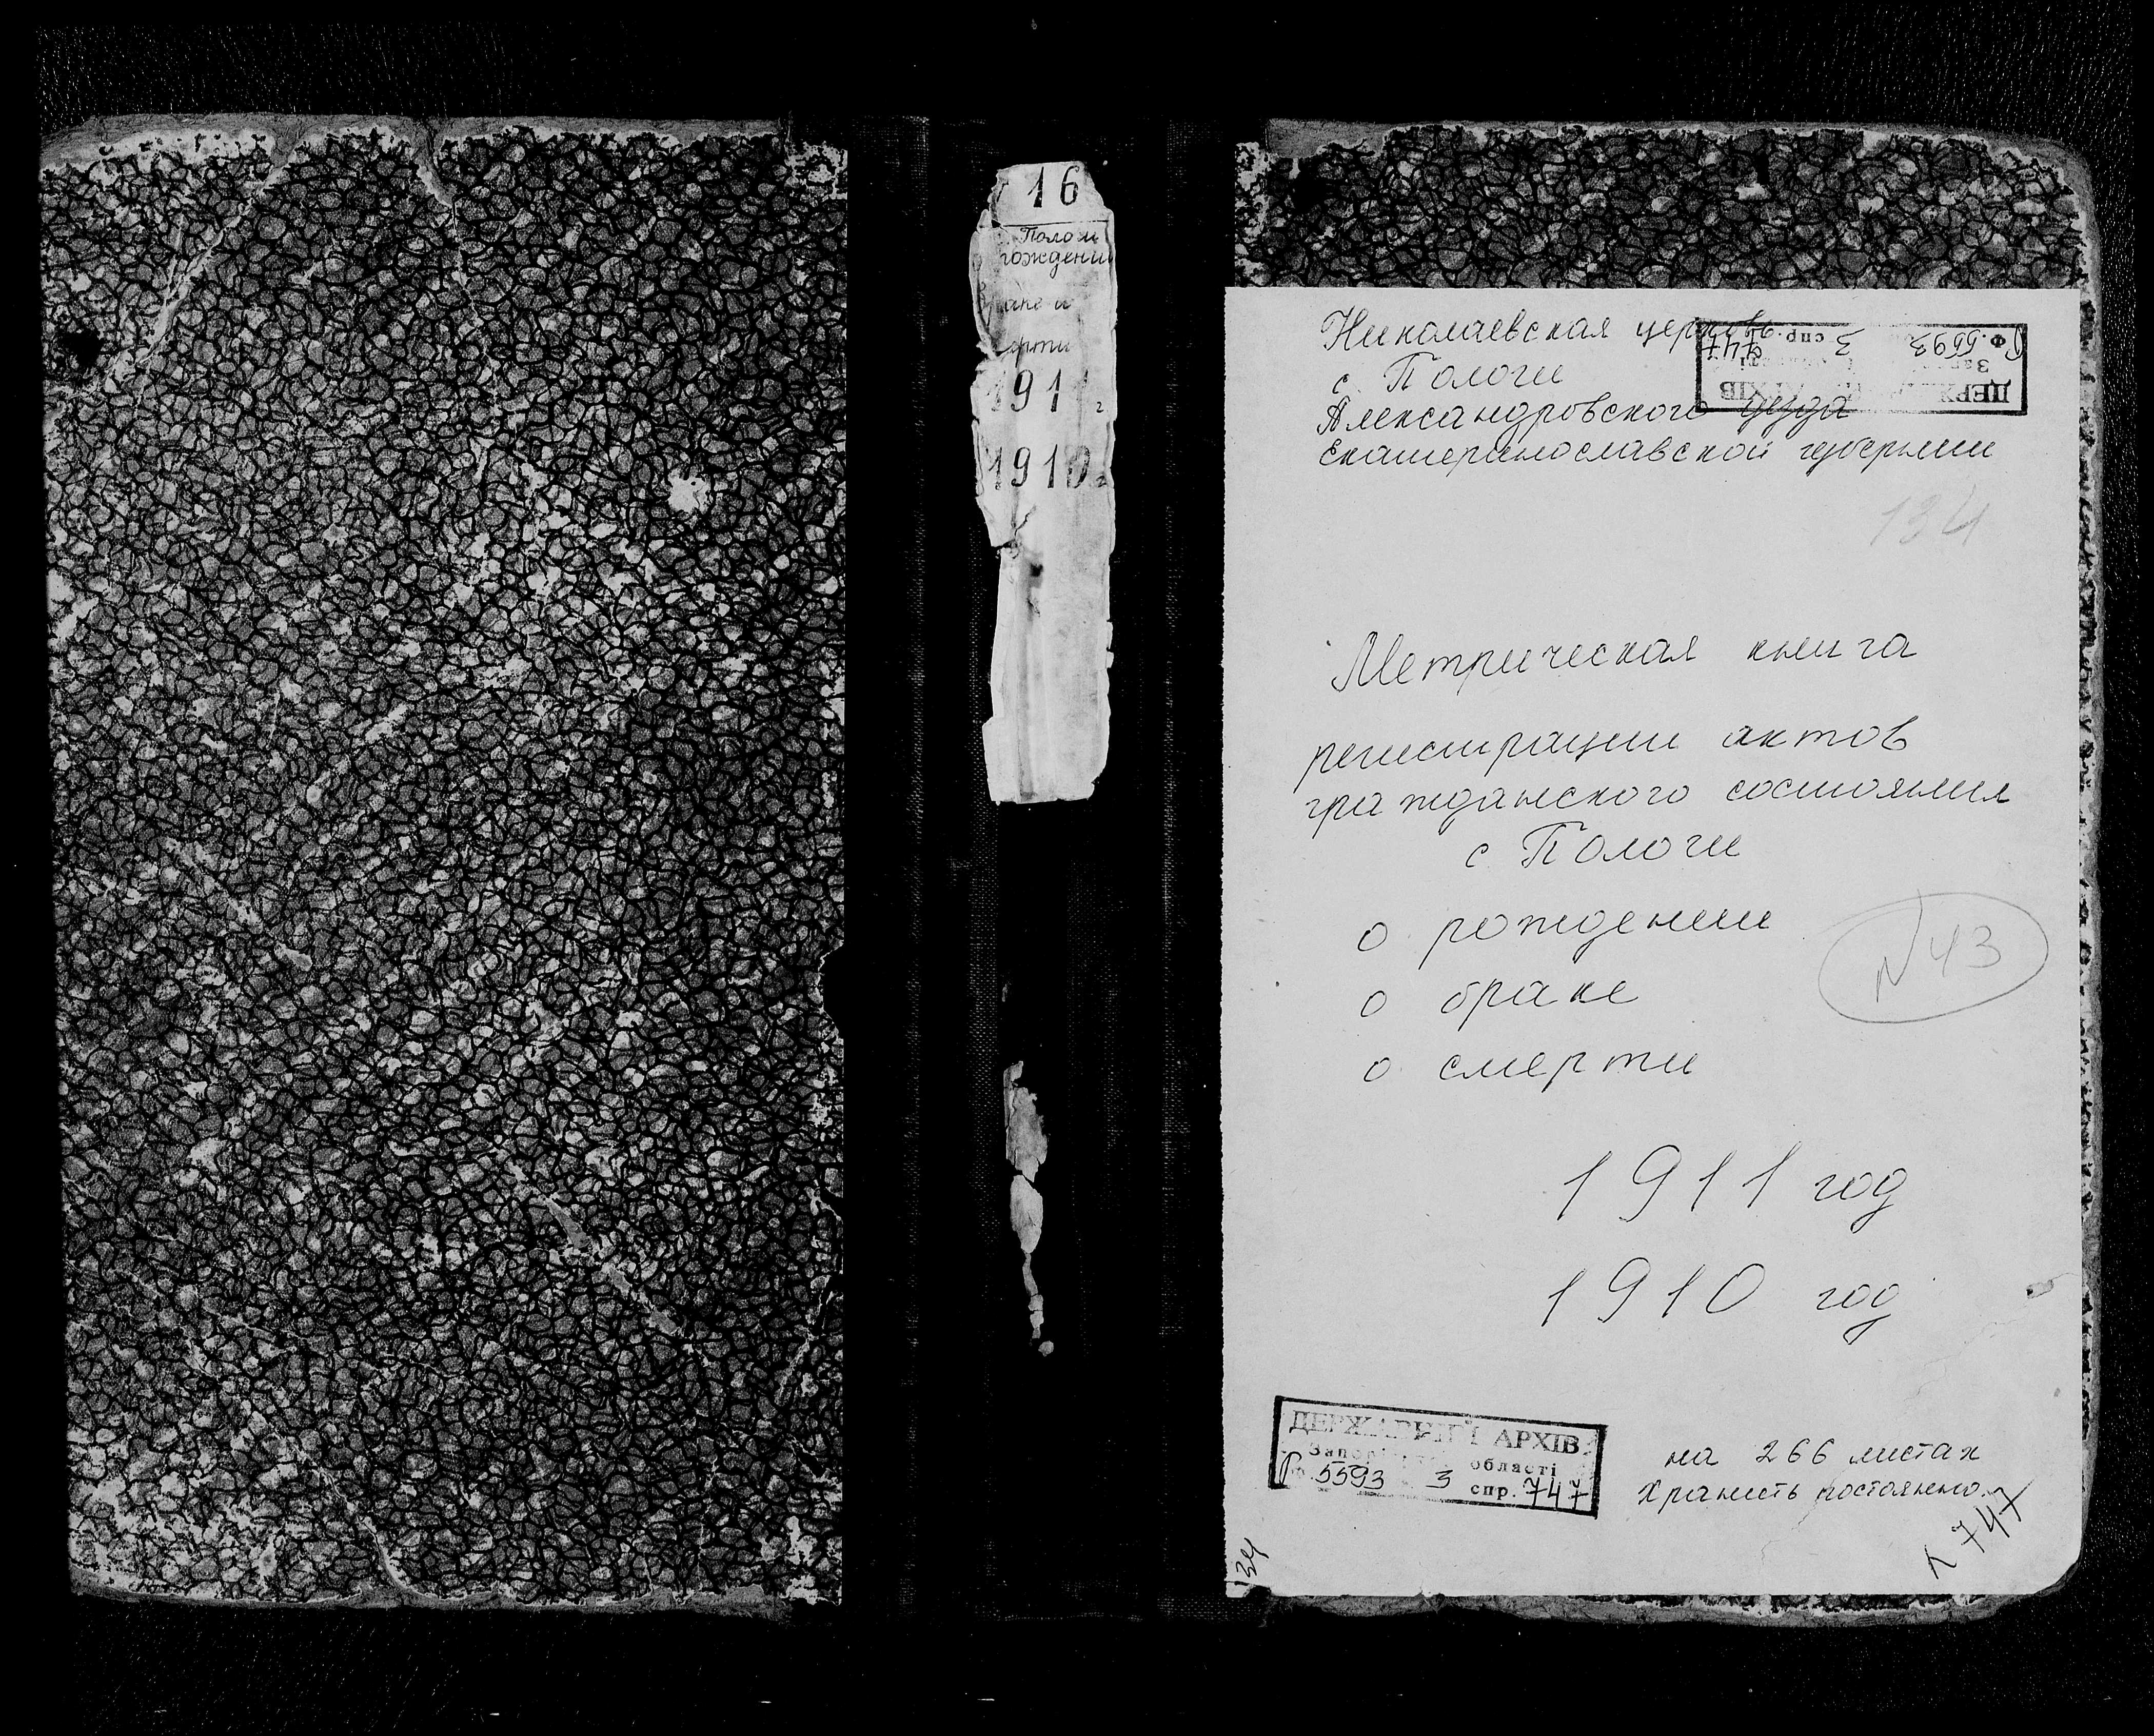 16
Пологи
рождении
браке и
смерти
1911 г
1910 г
Николаевская церковь
с. Пологи
Александровского уезда
Екатеринославской губернии
ДЕРЖ АРХІВ
Ф. 5593 3 спр. 747
134
Метрическая книга
регистрации актов
гражданского состояния
с. Пологи
о рождении
N 43
о браке
о смерти
1911 год
1910 год
ДЕРЖАВНИЙ АРХІВ
Запорізької області
Ф. 5593 3 спр. 747
на 266 листах
Хранить постоянно.
747
134